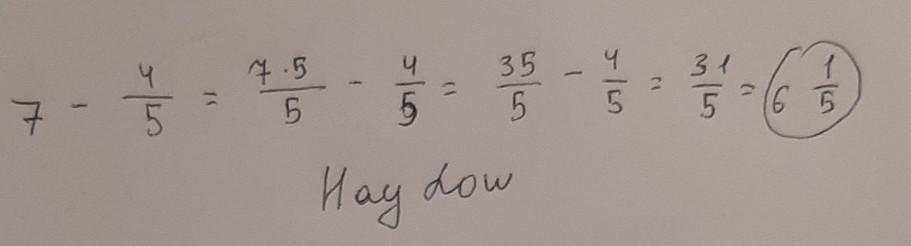 7 - 4/5 = 7·5/5 - 4/5 = 35/5 - 4/5 = 31/5 = 6 1/5
Hay dow